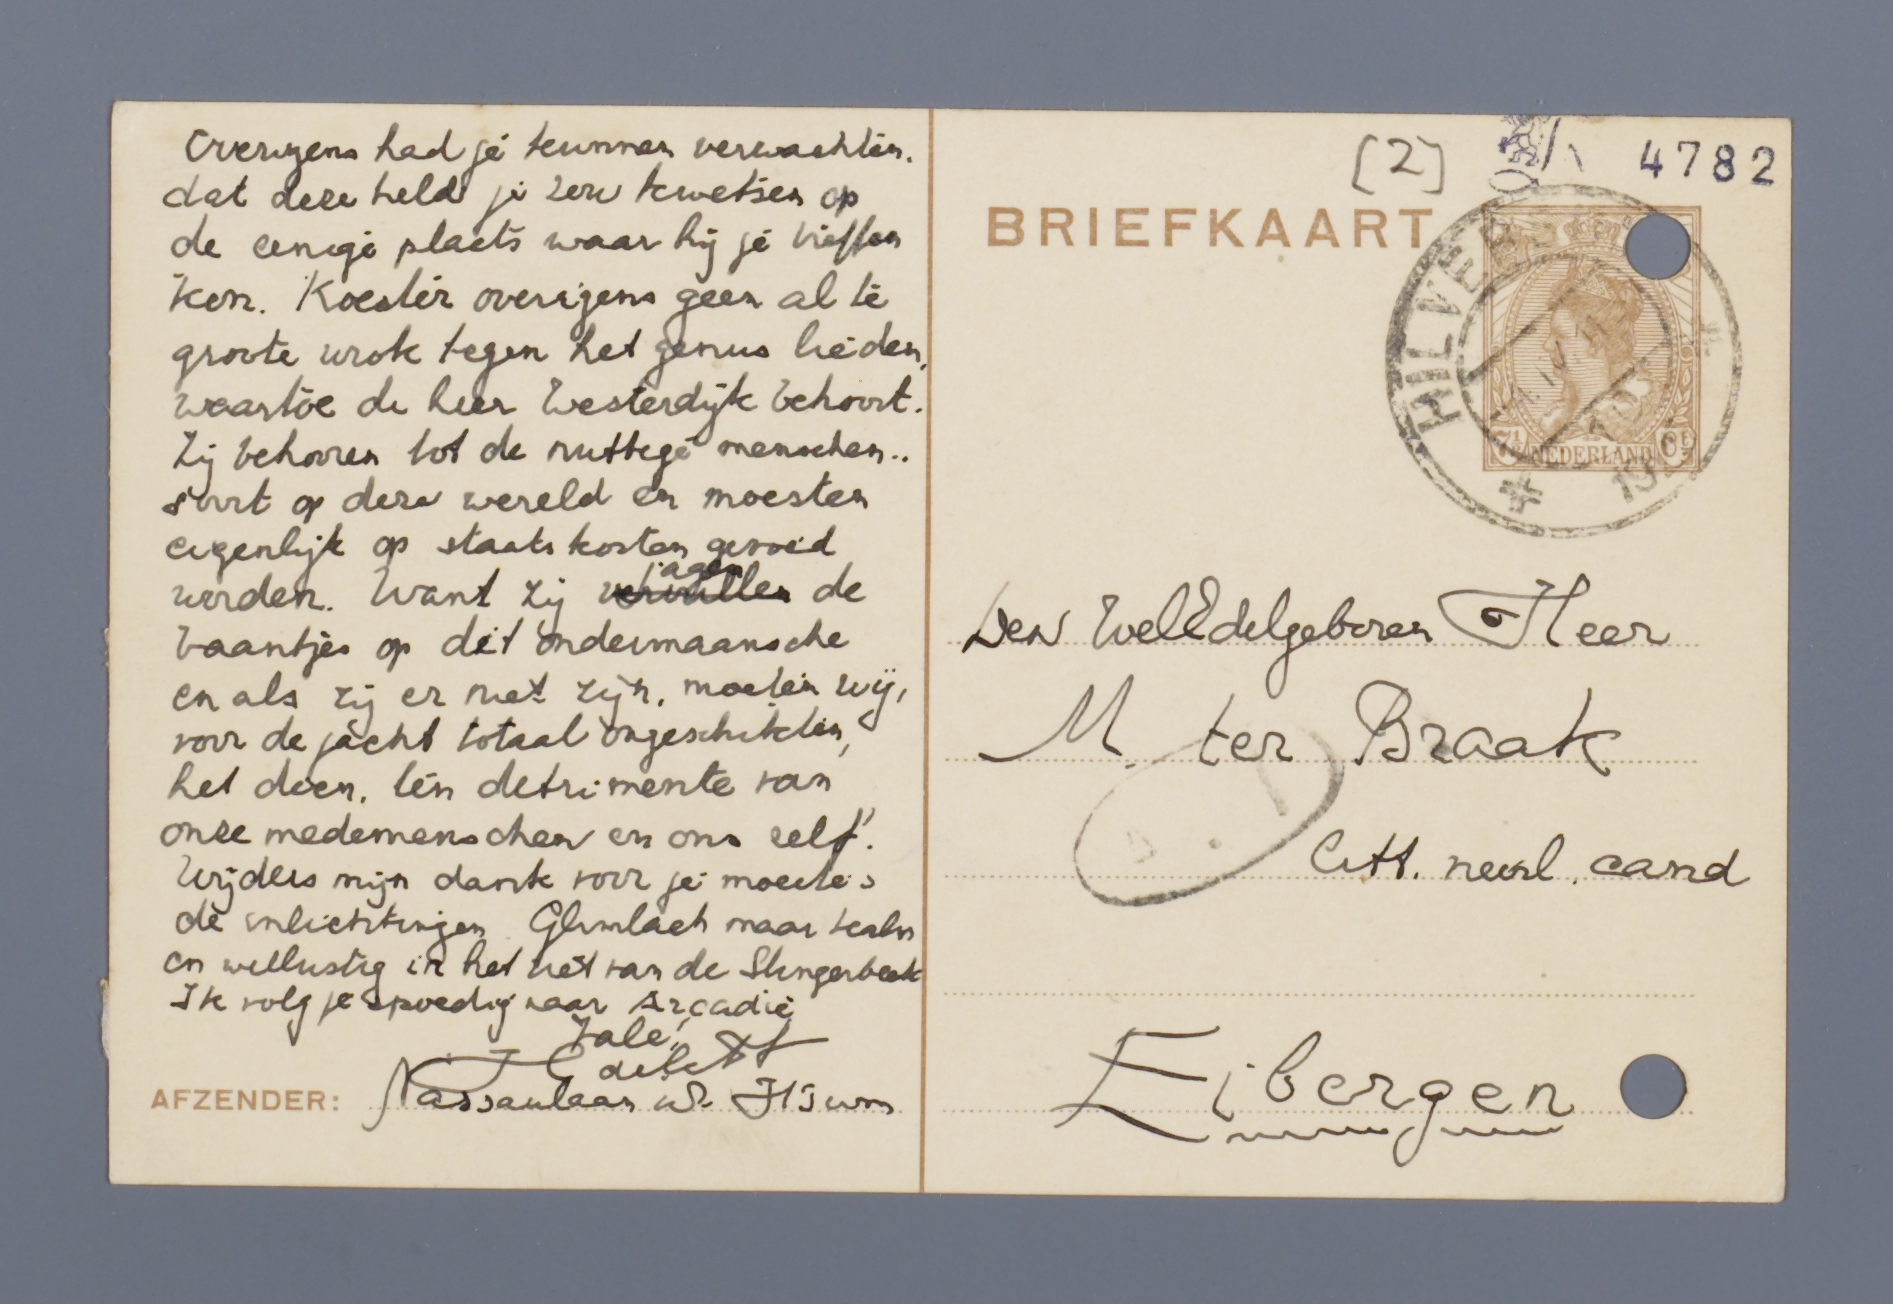 Overigens had je kunnen verwachten.
dat deze held je zou kwetsen op
de eenige plaats waar hij je treffen
kon. Koester overigens geen al te
groote wrok tegen het genus lieden,
waartoe de heer Westerdijk behoort.
Zij behooren tot de nuttige menschen..
soort op deze wereld en moesten
eigenlijk op staats kosten gevoed
worden. Want zij jagen de
baantjes op dit ondermaansche
en als zij er niet zijn, moeten wij,
voor de jacht totaal ongeschikten,
het doen, ten detrimente van
onze medemenschen en ons zelf!
Wijders mijn dank voor je moeite:
de inlichtingen Glimlach maar kalm
en wellustig in het riet van de Slingerbeek
Ik volg je spoedig naar Arcadië
Vale!
AFZENDER: Nassaulaan H'sum
[2]
4782
BRIEFKAART
HILVERSUM
7½ NEDERLAND ct
Den WelEdelgeboren Heer
M. ter Braak
Litt. neerl. cand
Eibergen